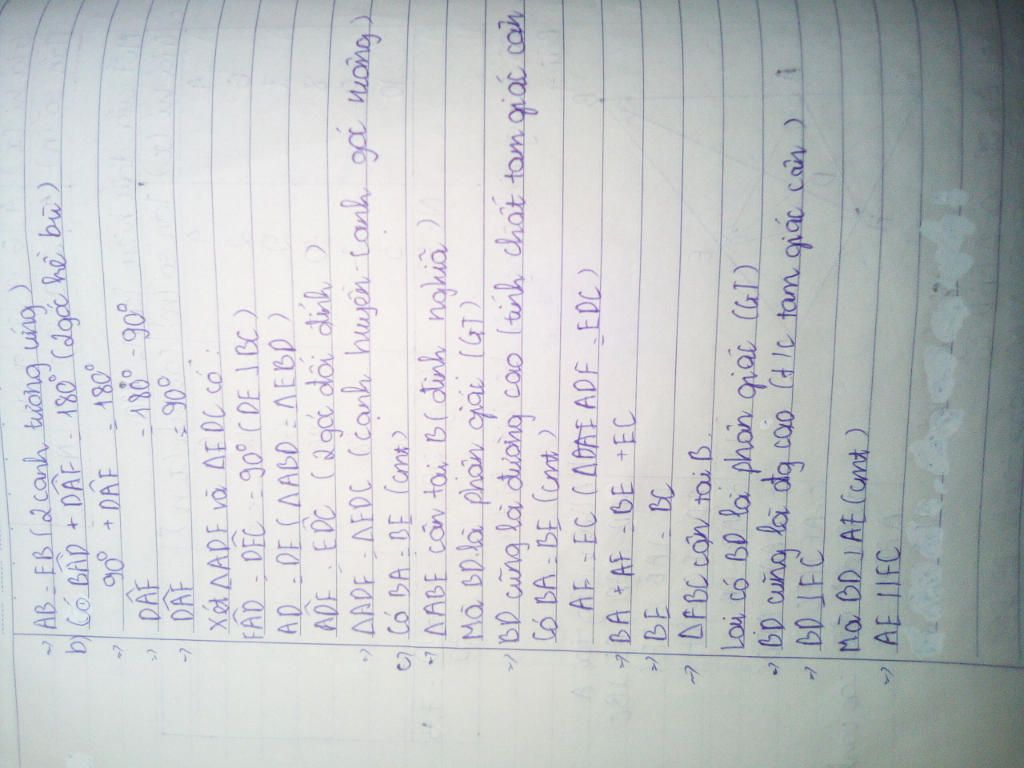 => AB = EB (2 cạnh tương ứng)
b) Có BÂD + DÂF = 180° (2 góc kề bù)
=> 90° + DÂF = 180°
=> DÂF = 180° - 90°
=> DÂF = 90°
Xét ΔADF và ΔEDC có:
FÂD = DÊC = 90° (DE ⊥ BC)
AD = DE (ΔABD = ΔEBD)
ADF = EDC (2 góc đối đỉnh)
=> ΔADF = ΔEDC (cạnh huyền-cạnh góc vuông)
c) Có BA = BE (cmt)
=> ΔABE cân tại B (định nghĩa)
Mà BD là phân giác (GT)
=> BD cũng là đường cao (tính chất tam giác cân
Có BA = BE (cmt)
AF = EC (ΔADF = EDC)
=> BA + AF = BE + EC
=> BF = BC
=> ΔFBC cân tại B.
Lại có BD là phân giác (GT)
=> BD cũng là đg cao (t/c tam giác cân)
=> BD ⊥ FC
Mà BD ⊥ AE (cmt)
=> AE || FC